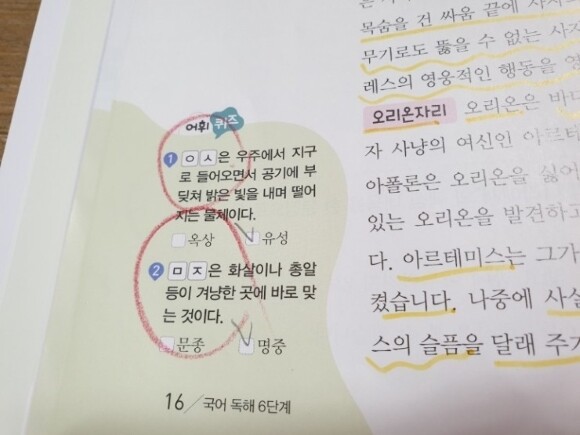 목숨을 건 싸움 끝에
무기로도 뚫을 수 없는
레스의 영웅적인 행동을
오리온자리 오리온은 바
자 사냥의 여신인
아폴론은 오리온을
있는 오리온을 발견하고
다. 아르테미스는 그가
켰습니다. 나중에
스의 슬픔을 달래
어휘 퀴즈
1 ㅇㅅ은 우주에서 지구
로 들어오면서 공기에 부
딪쳐 밝은 빛을 내며 떨어
지는 물체이다.
옥상 유성
2 ㅁㅈ은 화살이나 총알
등이 겨냥한 곳에 바로 맞
는 것이다.
문종 명중
16 / 국어 독해 6단계